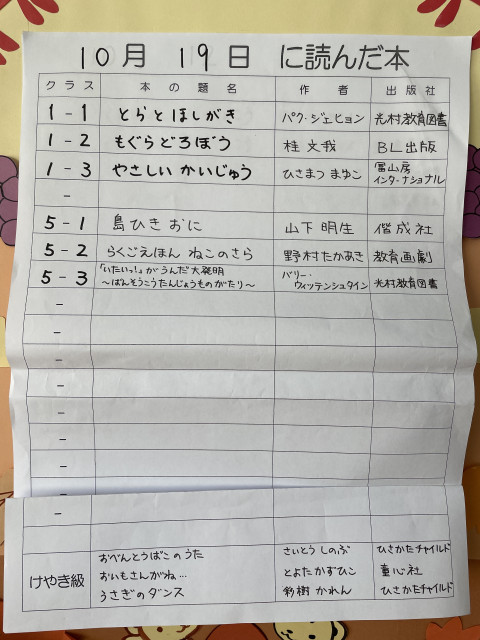 10月 19日 に読んだ本
クラス 本の題名 作者 出版社
1-1 とらとほしがき パク・ジェヒョン 光村教育図書
1-2 もぐらどろぼう 桂文我 BL出版
1-3 やさしいかいじゅう ひさまつまゆこ 冨山房インターナショナル
-
5-1 島ひきおに 山下明生 偕成社
5-2 らくごえほん ねこのさら 野村たかあき 教育画劇
5-3 「いたいっ!」がうんだ大発明 バリー・ 光村教育図書
〜ばんそうこうたんじょうものがたり〜 ウィッテンシュタイン
-
-
-
-
-
-
-
-
-
けやき級 おべんとうばこのうた さいとうしのぶ ひさかたチャイルド
おいもさんがね… とよたかずひこ 童心社
うさぎのダンス 彩樹かれん ひさかたチャイルド